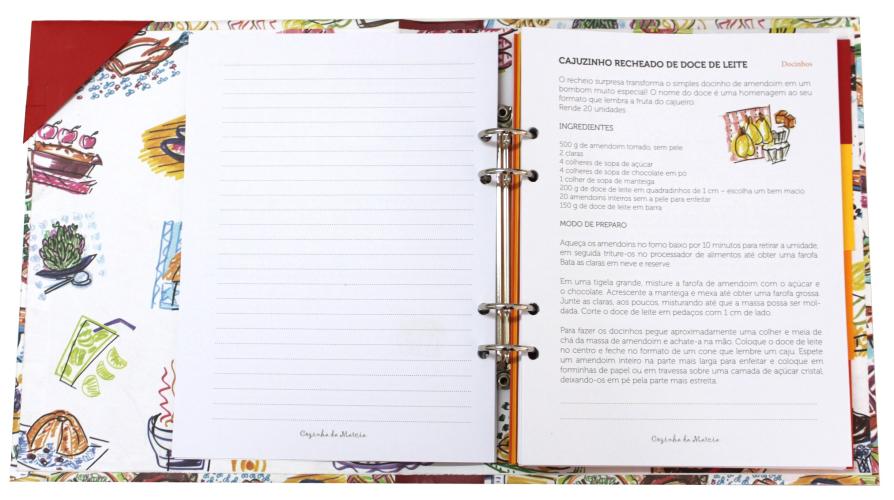 Cozinha da Marcia
CAJUZINHO RECHEADO DE DOCE DE LEITE
Docinhos
O recheio surpresa transforma o simples docinho de amendoim em um
bombom muito especial! O nome do doce é uma homenagem ao seu
formato que lembra a fruta do cajueiro.
Rende 20 unidades
INGREDIENTES
500 g de amendoim torrado, sem pele
2 claras
4 colheres de sopa de açúcar
4 colheres de sopa de chocolate em pó
1 colher de sopa de manteiga
200 g de doce de leite em quadradinhos de 1 cm – escolha um bem macio
20 amendoins inteiros sem a pele para enfeitar
150 g de doce de leite em barra
MODO DE PREPARO
Aqueça os amendoins no forno baixo por 10 minutos para retirar a umidade,
em seguida triture-os no processador de alimentos até obter uma farofa.
Bata as claras em neve e reserve.
Em uma tigela grande, misture a farofa de amendoim com o açúcar e
o chocolate. Acrescente a manteiga e mexa até obter uma farofa grossa.
Junte as claras, aos poucos, misturando até que a massa possa ser mol-
dada. Corte o doce de leite em pedaços com 1 cm de lado.
Para fazer os docinhos pegue aproximadamente uma colher e meia de
chá da massa de amendoim e achate-a na mão. Coloque o doce de leite
no centro e feche no formato de um cone que lembre um caju. Espete
um amendoim inteiro na parte mais larga para enfeitar e coloque em
forminhas de papel ou em travessa sobre uma camada de açúcar cristal,
deixando-os em pé pela parte mais estreita.
Cozinha da Marcia